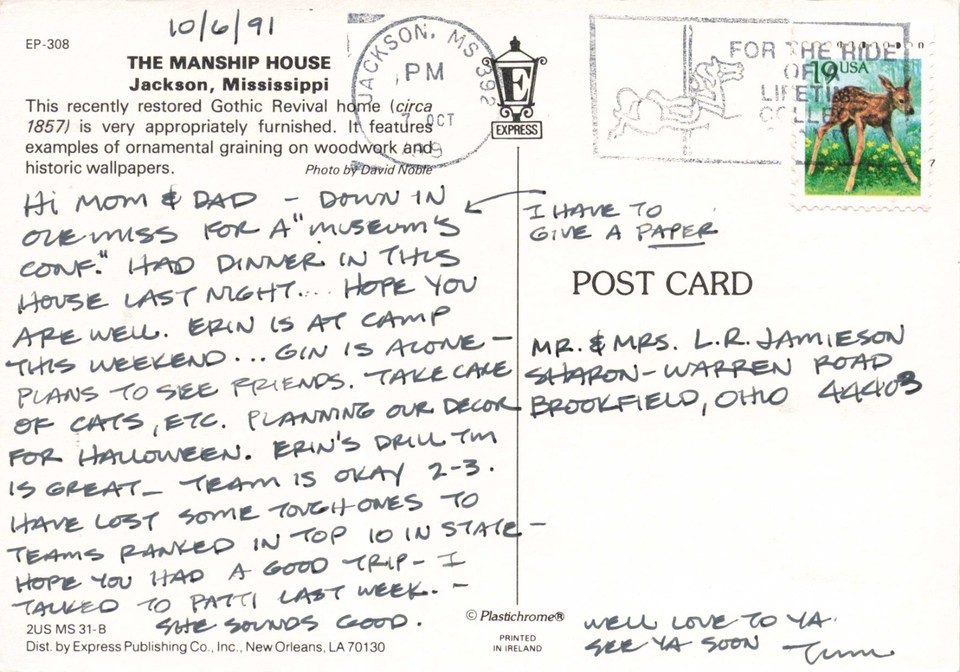 10/6/91
EP-308
THE MANSHIP HOUSE
Jackson, Mississippi
This recently restored Gothic Revival home (circa
1857) is very appropriately furnished. It features
examples of ornamental graining on woodwork and
historic wallpapers.
Photo by David Noble
HI MOM & DAD - DOWN IN
OLE MISS FOR A "MUSEUM'S
CONF." HAD DINNER IN THIS
HOUSE LAST NIGHT... HOPE YOU
ARE WELL. ERIN IS AT CAMP
THIS WEEKEND... GIN IS ALONE -
PLANS TO SEE FRIENDS. TAKE CARE
OF CATS, ETC. PLANNING OUR DECOR
FOR HALLOWEEN. ERIN'S DRILL TM
IS GREAT - TEAM IS OKAY 2-3.
HAVE LOST SOME TOUGH ONES TO
TEAMS RANKED IN TOP 10 IN STATE -
HOPE YOU HAD A GOOD TRIP - I
TALKED TO PATTI LAST WEEK. -
SHE SOUNDS GOOD.
2US MS 31-B
Dist. by Express Publishing Co., Inc., New Orleans, LA 70130
JACKSON, MS 392
PM
7 OCT
E
EXPRESS
FOR THE RIDE
OF A
LIFETIME
19 USA
I HAVE TO
GIVE A PAPER
POST CARD
MR. & MRS. L.R. JAMIESON
SHARON-WARREN ROAD
BROOKFIELD, OHIO 44403
© Plastichrome®
PRINTED
IN IRELAND
WELL LOVE TO YA.
SEE YA SOON